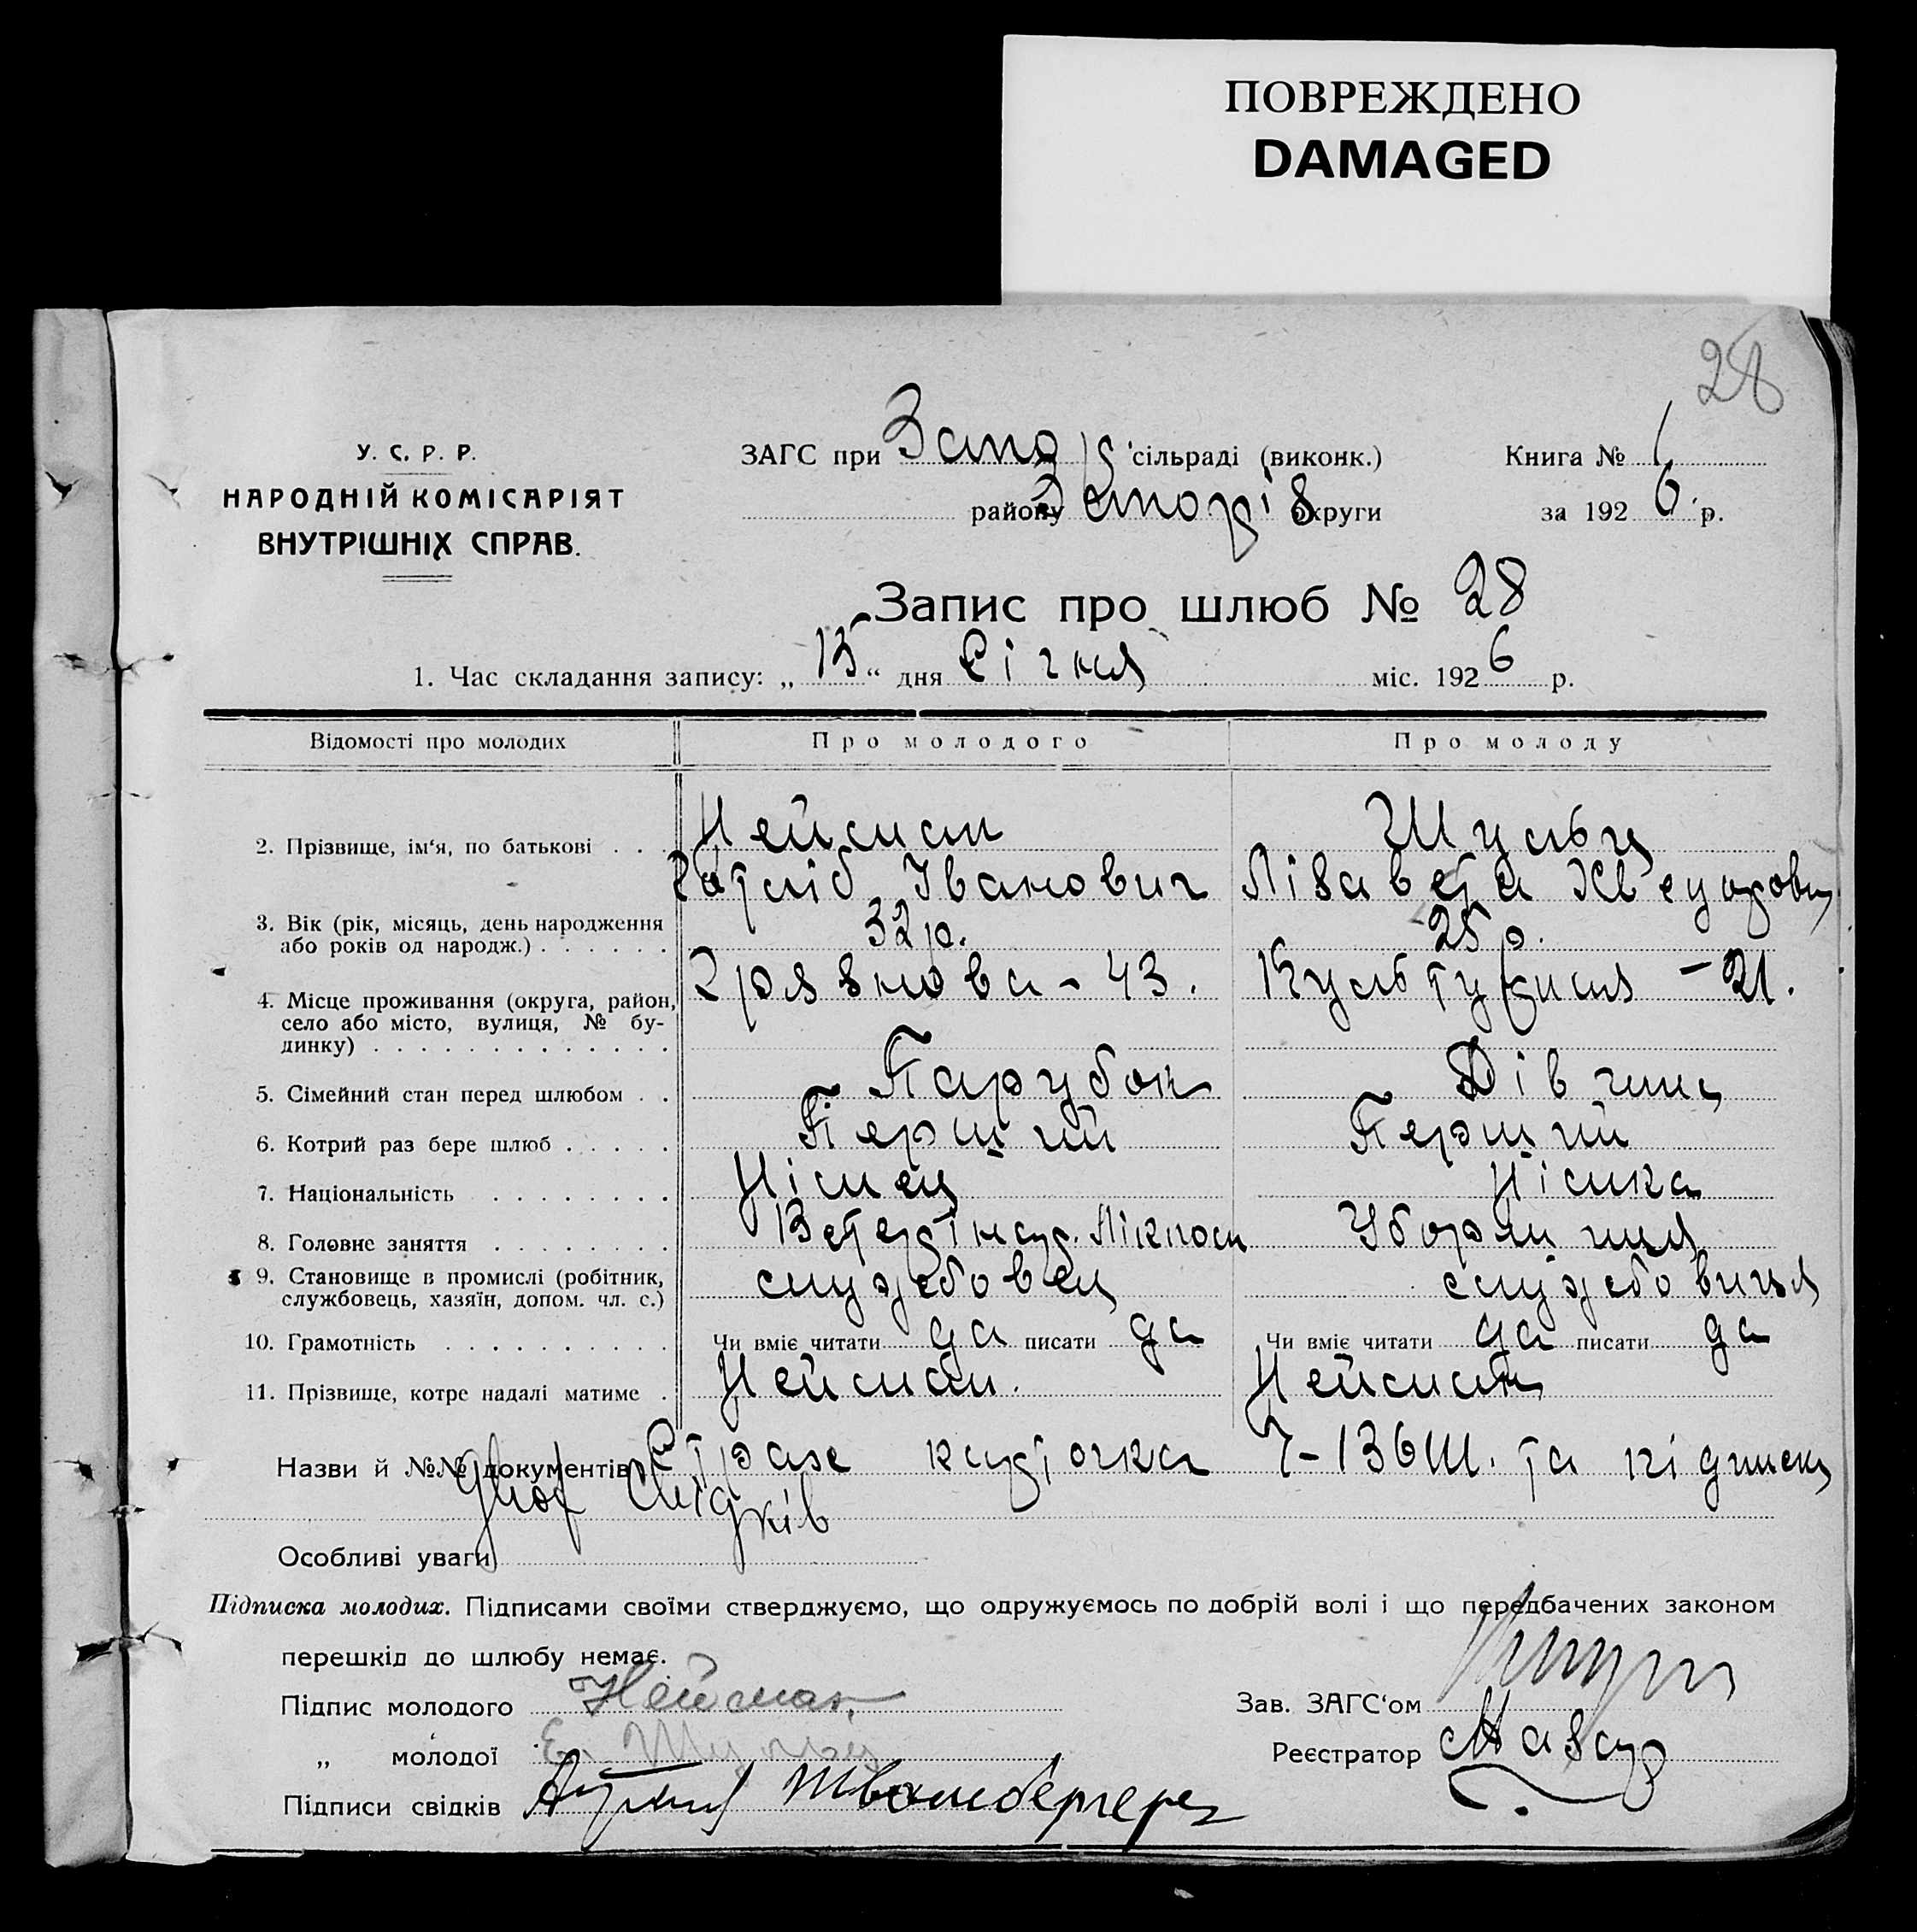 ПОВРЕЖДЕНО
DAMAGED
28
У. С. Р. Р.
НАРОДНІЙ КОМІСАРІЯТ
ВНУТРІШНІХ СПРАВ.
ЗАГС при Запор сільраді (виконк.)
району Запоріз округи
Книга № 1
за 1926 р.
Запис про шлюб № 28
1. Час складання запису: „ 15 “ дня Січня міс. 1926 р.
Відомості про молодих Про молодого Про молоду
2. Прізвище, ім‘я, по батькові . . . Нейман Шульц
Готліб Іванович Лізавета
3. Вік (рік, місяць, день народження
або років од народж.) . . . . . . 32 р. 25 р.
4. Місце проживання (округа, район, Грязнова - 43. - 21.
село або місто, вулиця, № бу-
динку) . . . . . . . . . . . . .
5. Сімейний стан перед шлюбом . . Парубок Дівчина
6. Котрий раз бере шлюб . . . . . Перший Перший
7. Національність . . . . . . . . Німец Німка
8. Головне заняття . . . . . . . . Ветерінар. Лікпом
9. Становище в промислі (робітник,
службовець, хазяїн, допом. чл. с.) службовец службовиця
10. Грамотність . . . . . . . . . . Чи вміє читати да писати да Чи вміє читати да писати да
11. Прізвище, котре надалі матиме . Нейман. Нейман
Назви й №№ документів Страх карточка та підписка
двох Свідків
Особливі уваги
Підписка молодих. Підписами своїми стверджуємо, що одружуємось по добрій волі і що передбачених законом
перешкід до шлюбу немає.
Підпис молодого Нейман
Зав. ЗАГС‘ом
„ молодої Е. Шульц
Реєстратор Мазур
Підписи свідків